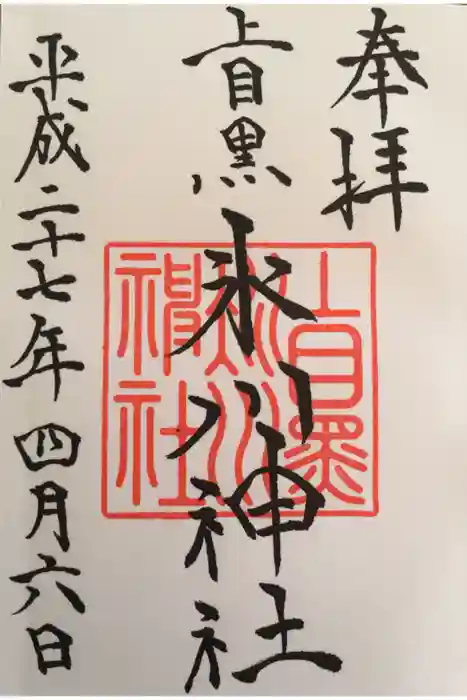 奉拝
上目黒
氷川神社
平成二十七年四月六日
上目黒
氷川
神社